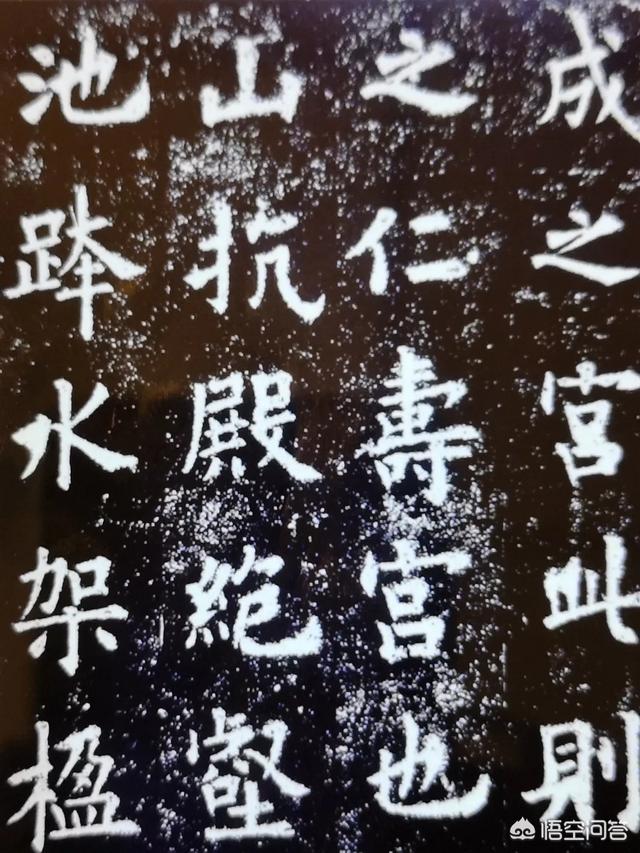 成之宮此則
之仁壽宮也
山抗殿絕壑爲
池跨水架楹
悟空问答